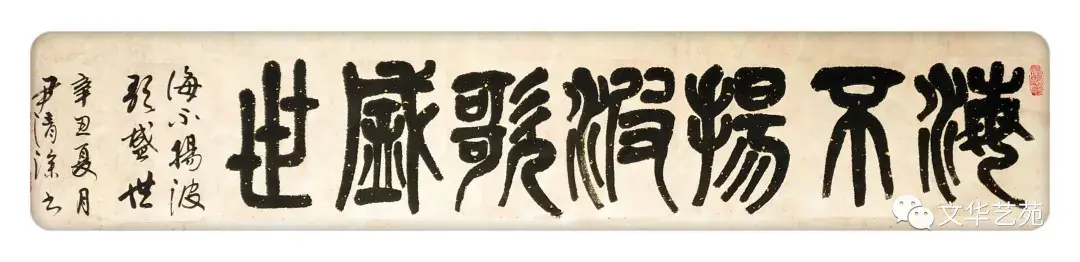 海不揚波歌盛世
海不揚波
歌盛世
辛丑夏月
尹清书
文华艺苑